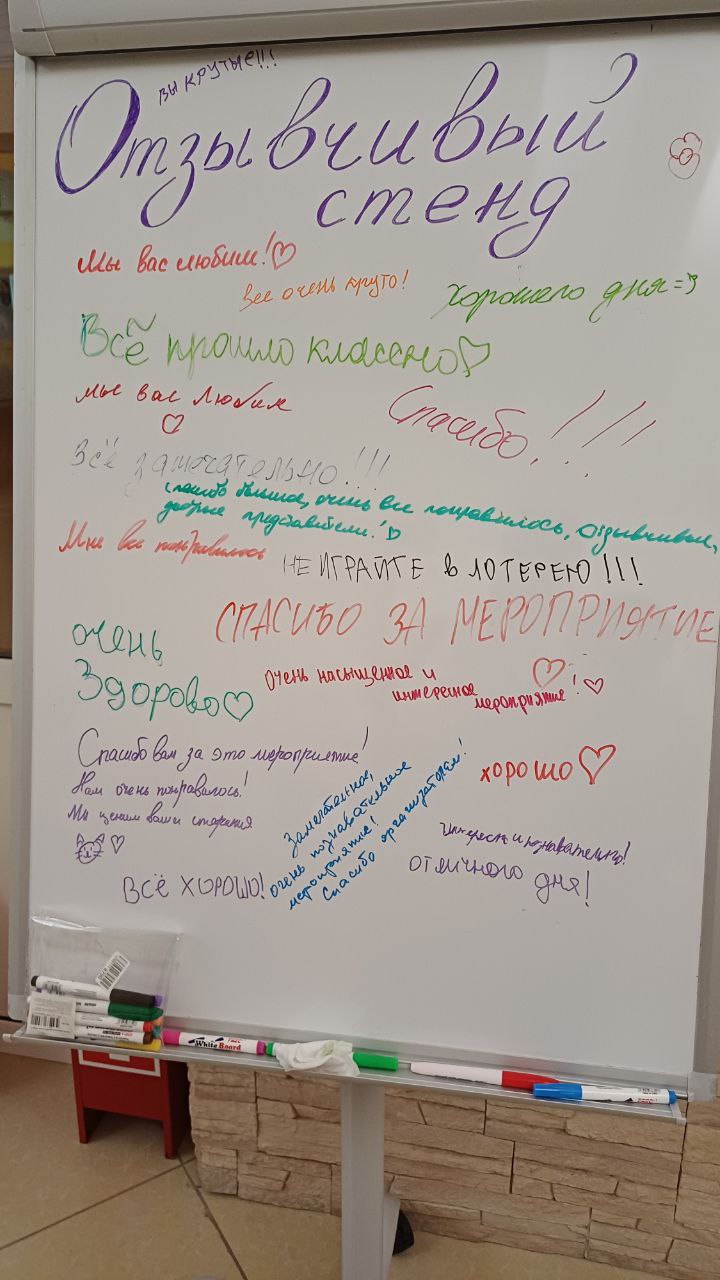 вы крутые!!!
Отзывчивый
стенд
Мы вас любим!
все очень круто!
Хорошего дня =)
Всё прошло классно
мы вас любим
Спасибо!!!
Всё замечательно!!!
спасибо большое, очень все понравилось, отзывчивые,
добрые представители!
Мне все понравилось
НЕ ИГРАЙТЕ в ЛОТЕРЕЮ!!!
СПАСИБО ЗА МЕРОПРИЯТИЕ
очень
Здорово
Очень насыщенное и
интересное
мероприятие!
Спасибо вам за это мероприятие!
Нам очень понравилось!
Мы ценим ваши старания
хорошо
Замечательное,
очень познавательное
мероприятие!
Спасибо организаторам!
Интересно и познавательно!
отличного дня!
Всё хорошо!
White Board